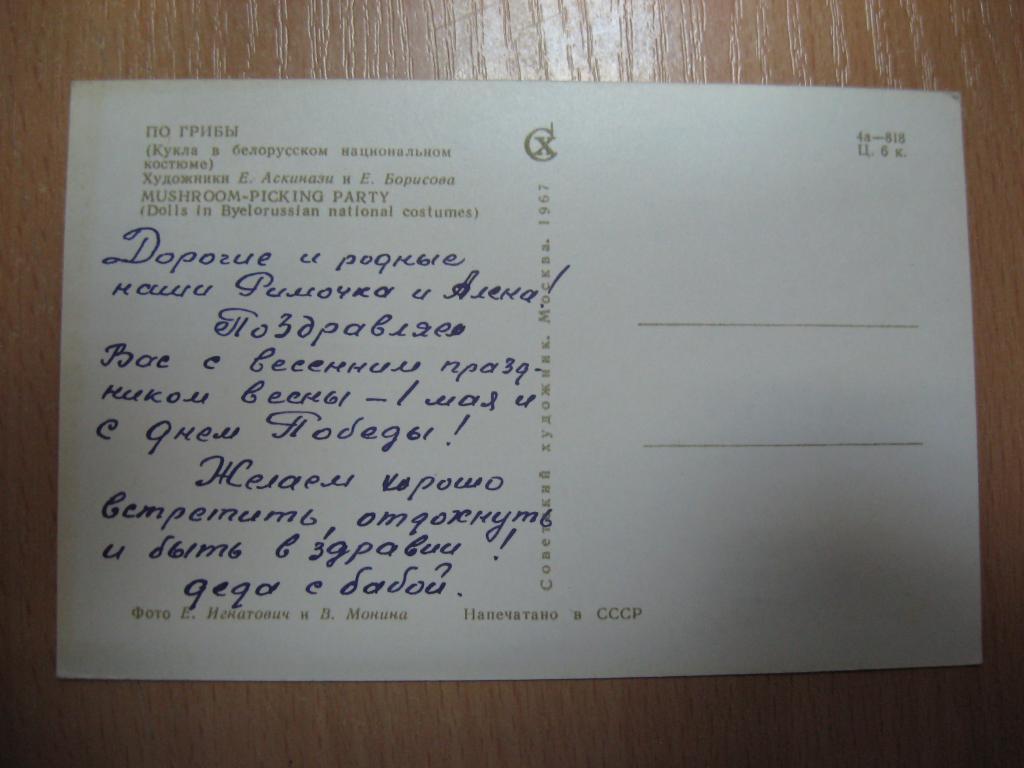 ПО ГРИБЫ
(Кукла в белорусском национальном
костюме)
Художники Е. Аскинази и Е. Борисова
MUSHROOM-PICKING PARTY
(Dolls in Byelorussian national costumes)
Дорогие и родные
наши Римочка и Алена!
Поздравляем
Вас с весенним празд-
ником весны – 1 мая и
с днем Победы!
Желаем хорошо
встретить, отдохнуть
и быть в здравии!
деда с бабой.
Фото Е. Игнатович и В. Монина
Напечатано в СССР
Советский художник. Москва. 1967
СХ
4а—818
Ц. 6 к.